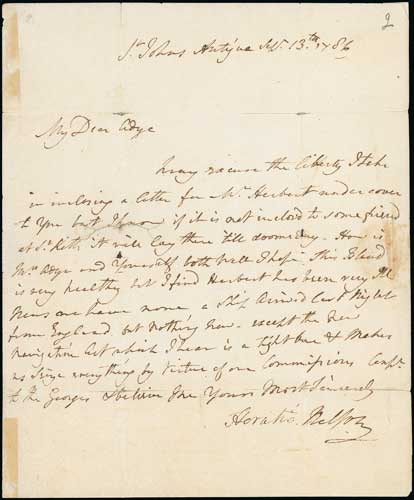 2
St. Johns Antigua Sepr. 13th. 1786
My Dear Adye
Pray excuse the liberty I take
in inclosing a letter for Mr. Herbert under cover
to You but I know if it is not inclosed to some friend
at St. Kitts, it will lay there till doomsday. How is
Mrs. Adye and Yourself both well I hope. this Island
is very healthy but I find Herbert has been very Ill
News we have none a Ship Arrived last Night
from England but nothing New. except the New
Navigation Act which I hear is a tight one & Makes
us seize everything by Virtue of our Commissions Compts.
to the Georges & believe Me Yours Most Sincerely
Horatio Nelson